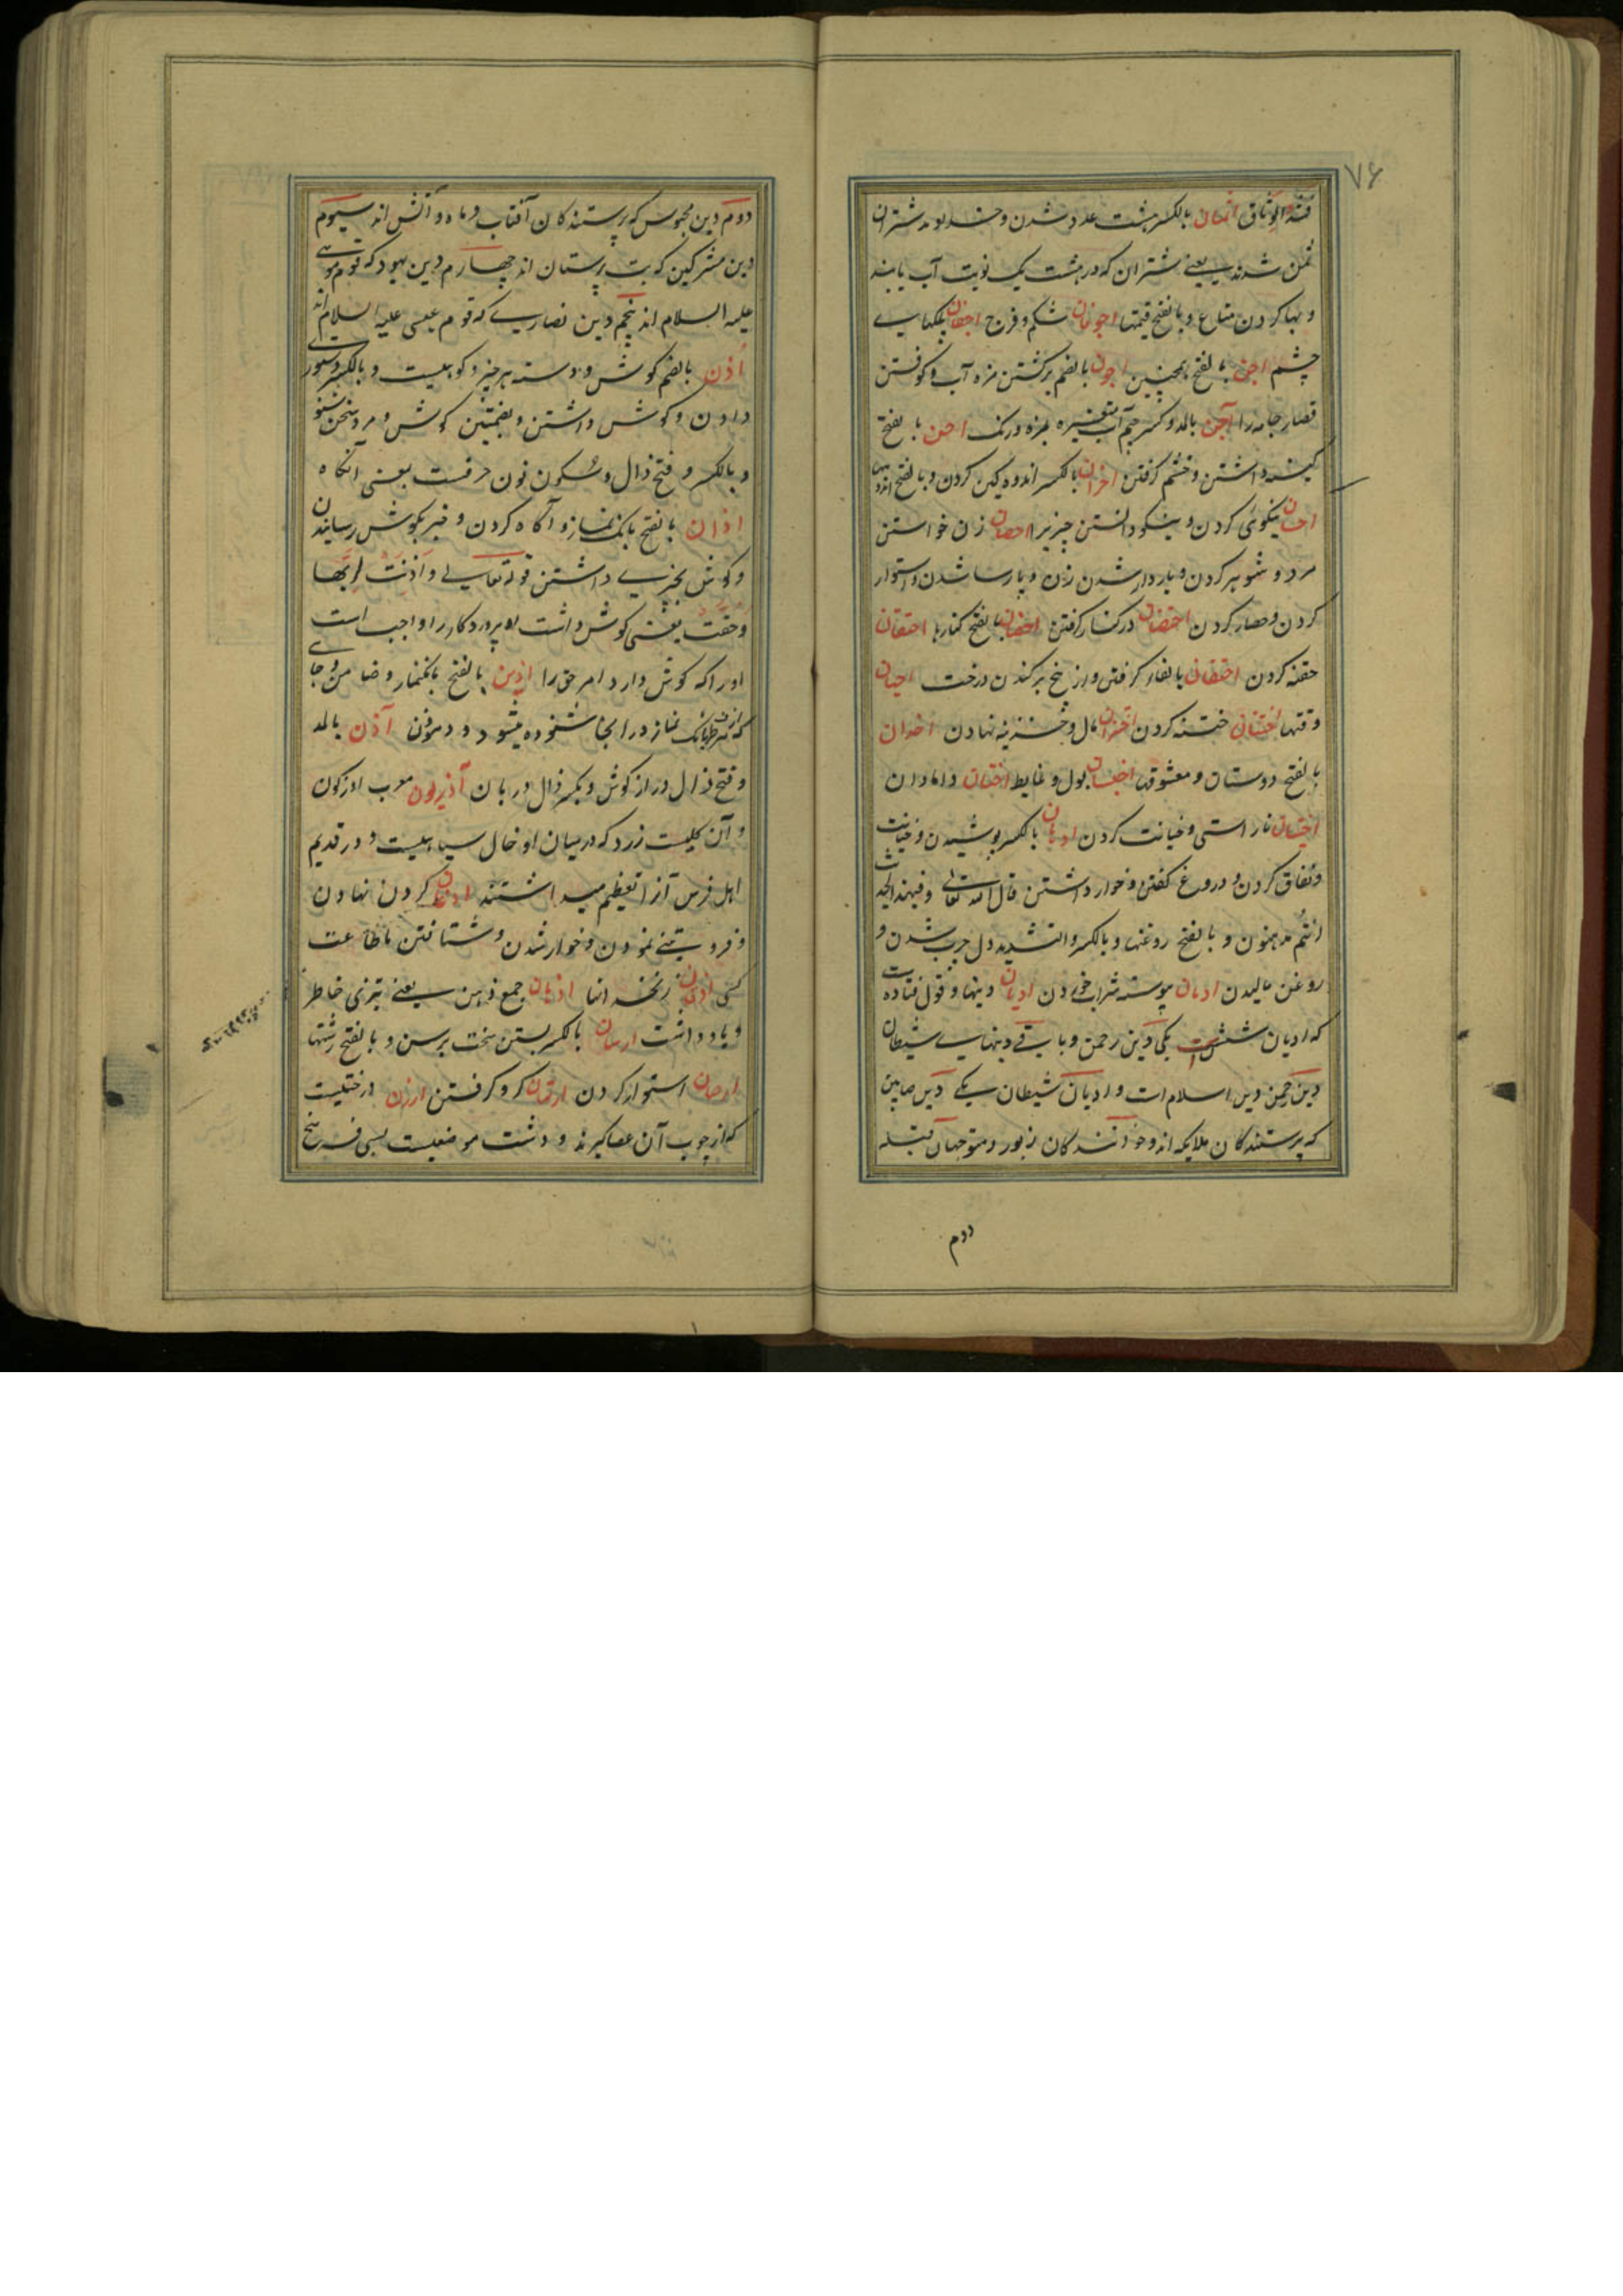 ۷۶
اثمان بالکسر هشت عدد شدن و خداوند شتران
ثمن شدن یعنے شتران که در هشت یک نوبت آب یابند
و بها کردن متاع و بالفتح قیمتها اجوفان شکم و فرج اجفان پلکهایے
چشم اجن بالفتح همچنین اجون بالضم برکشتن مزه آب و کوفتن
قصار جامه را آجن بالمد و کسر جیم آب متغیره بمزه و رنک احن بالفتح
کینه داشتن و خشم کرفتن احزان بالکسر اندوه کین کردن و بالفتح اندوهها
احسان نیکوئی کردن و نیکو دانستن چیزیرا احصان زن خواستن
مرد و شوهر کردن و باردار شدن زن و پارسا شدن و استوار
کردن و حصار کردن احتضان در کنار کرفتن احضان بالفتح کنارها احتقان
حقنه کردن احتفان کرفتن و از بیخ برکندن درخت احیان
وقتها اختتان ختنه کردن اختزان مال و خزینه نهادن اخدان
بالفتح دوستان و معشوقها اخبثان بول و غایط اختان دامادان
اختیان ناراستی و خیانت کردن ادهان بالکسر پوشیدن و خیانت
و نفاق کردن و دروغ کفتن و خوار داشتن قال الله تعالی افبهذا الحدیث
انتم مدهنون و بالفتح روغنها و بالکسر و التشدید دال چرب شدن و
روغن مالیدن ادمان پیوسته شراب خوردن ادیان دینها و قول قتاده است
که ادیان شش است یکی دین رحمن و باقے دینهایے شیطان
دین رحمن دین اسلام است و ادیان شیطان یکے دین صابین
که پرستندکان ملایکه اند و خوانندکان زبور و متوجهان قبله
دوم
دوم دین مجوس که پرستندکان آفتاب و ماه و آتش اند سیوم
دین مشرکین که بت پرستان اند چهارم دین یهود که قوم موسے
علیه السلام اند پنجم دین نصارے که قوم عیسی علیه السلام اند
اذن بالضم کوش و دسته هر چیز و کوهیست و بالکسر دستورے
دادن و کوش داشتن و بضمتین کوش و مرد سخن شنو
و بالکسر و فتح ذال و سکون نون حرفست بمعنی آنکاه
اذان بالفتح بانک نماز و آکاه کردن و خبر بکوش رسانیدن
و کوش بچیزے داشتن قوله تعالے و اذنت لربها
و حقت یعنی کوش داشت لا پروردکار را و واجب است
او را که کوش دارد امر حق را اذین بالفتح بانکنماز و ضامن و جاے
که از هر طرف بانک نماز در انجا شنوده میشود و موذن آذن بالمد
و فتح ذال دراز کوش و بکسر ذال دربان آذریون معرب اذرکون
و آن کلیست زرد که در میان او خال سیاهیست و در قدیم
اهل فرس آنرا تعظیم میداشتند اذعان کردن نهادن
و فروتنے نمودن و خوار شدن و شتافتن باطاعت
کسی اذقان زنخدانها اذهان جمع ذهن یعنے تیزی خاطر
و یادداشت ارسان بالکسر بستن سخت برسن و بالفتح رشتها
ارصان استوار کردن ارتهان کرو کرفتن ارزن درختیست
که از چوب آن عصا کیرند و دشت موضعیست بسی فرسخ